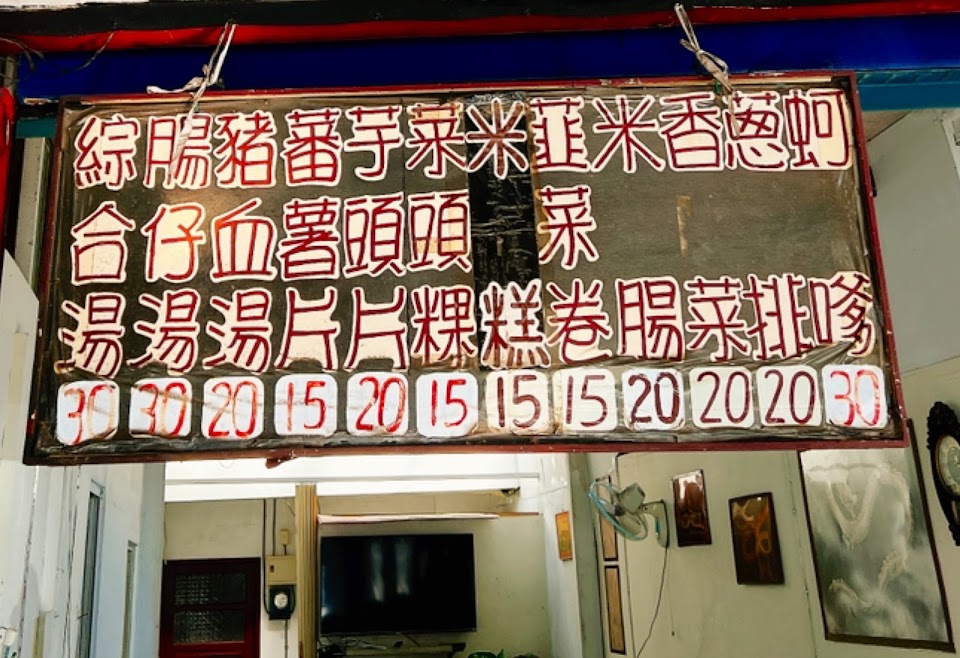 蚵嗲 30
蔥排 20
香菜 20
米腸 20
韮菜卷 15
米糕 15
菜頭粿 15
芋頭片 20
蕃薯片 15
豬血湯 20
腸仔湯 30
綜合湯 30